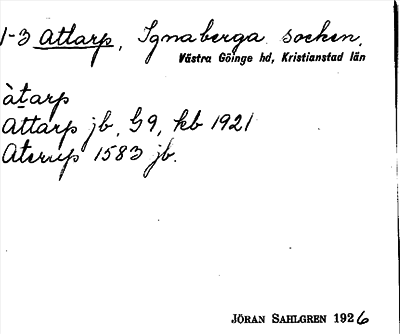 1-3 Attarp, Ignaberga socken,
Västra Göinge hd, Kristianstad län
àtarp
Attarp jb, G9, kb 1921
Aterup 1583 jb.
JÖRAN SAHLGREN 1926